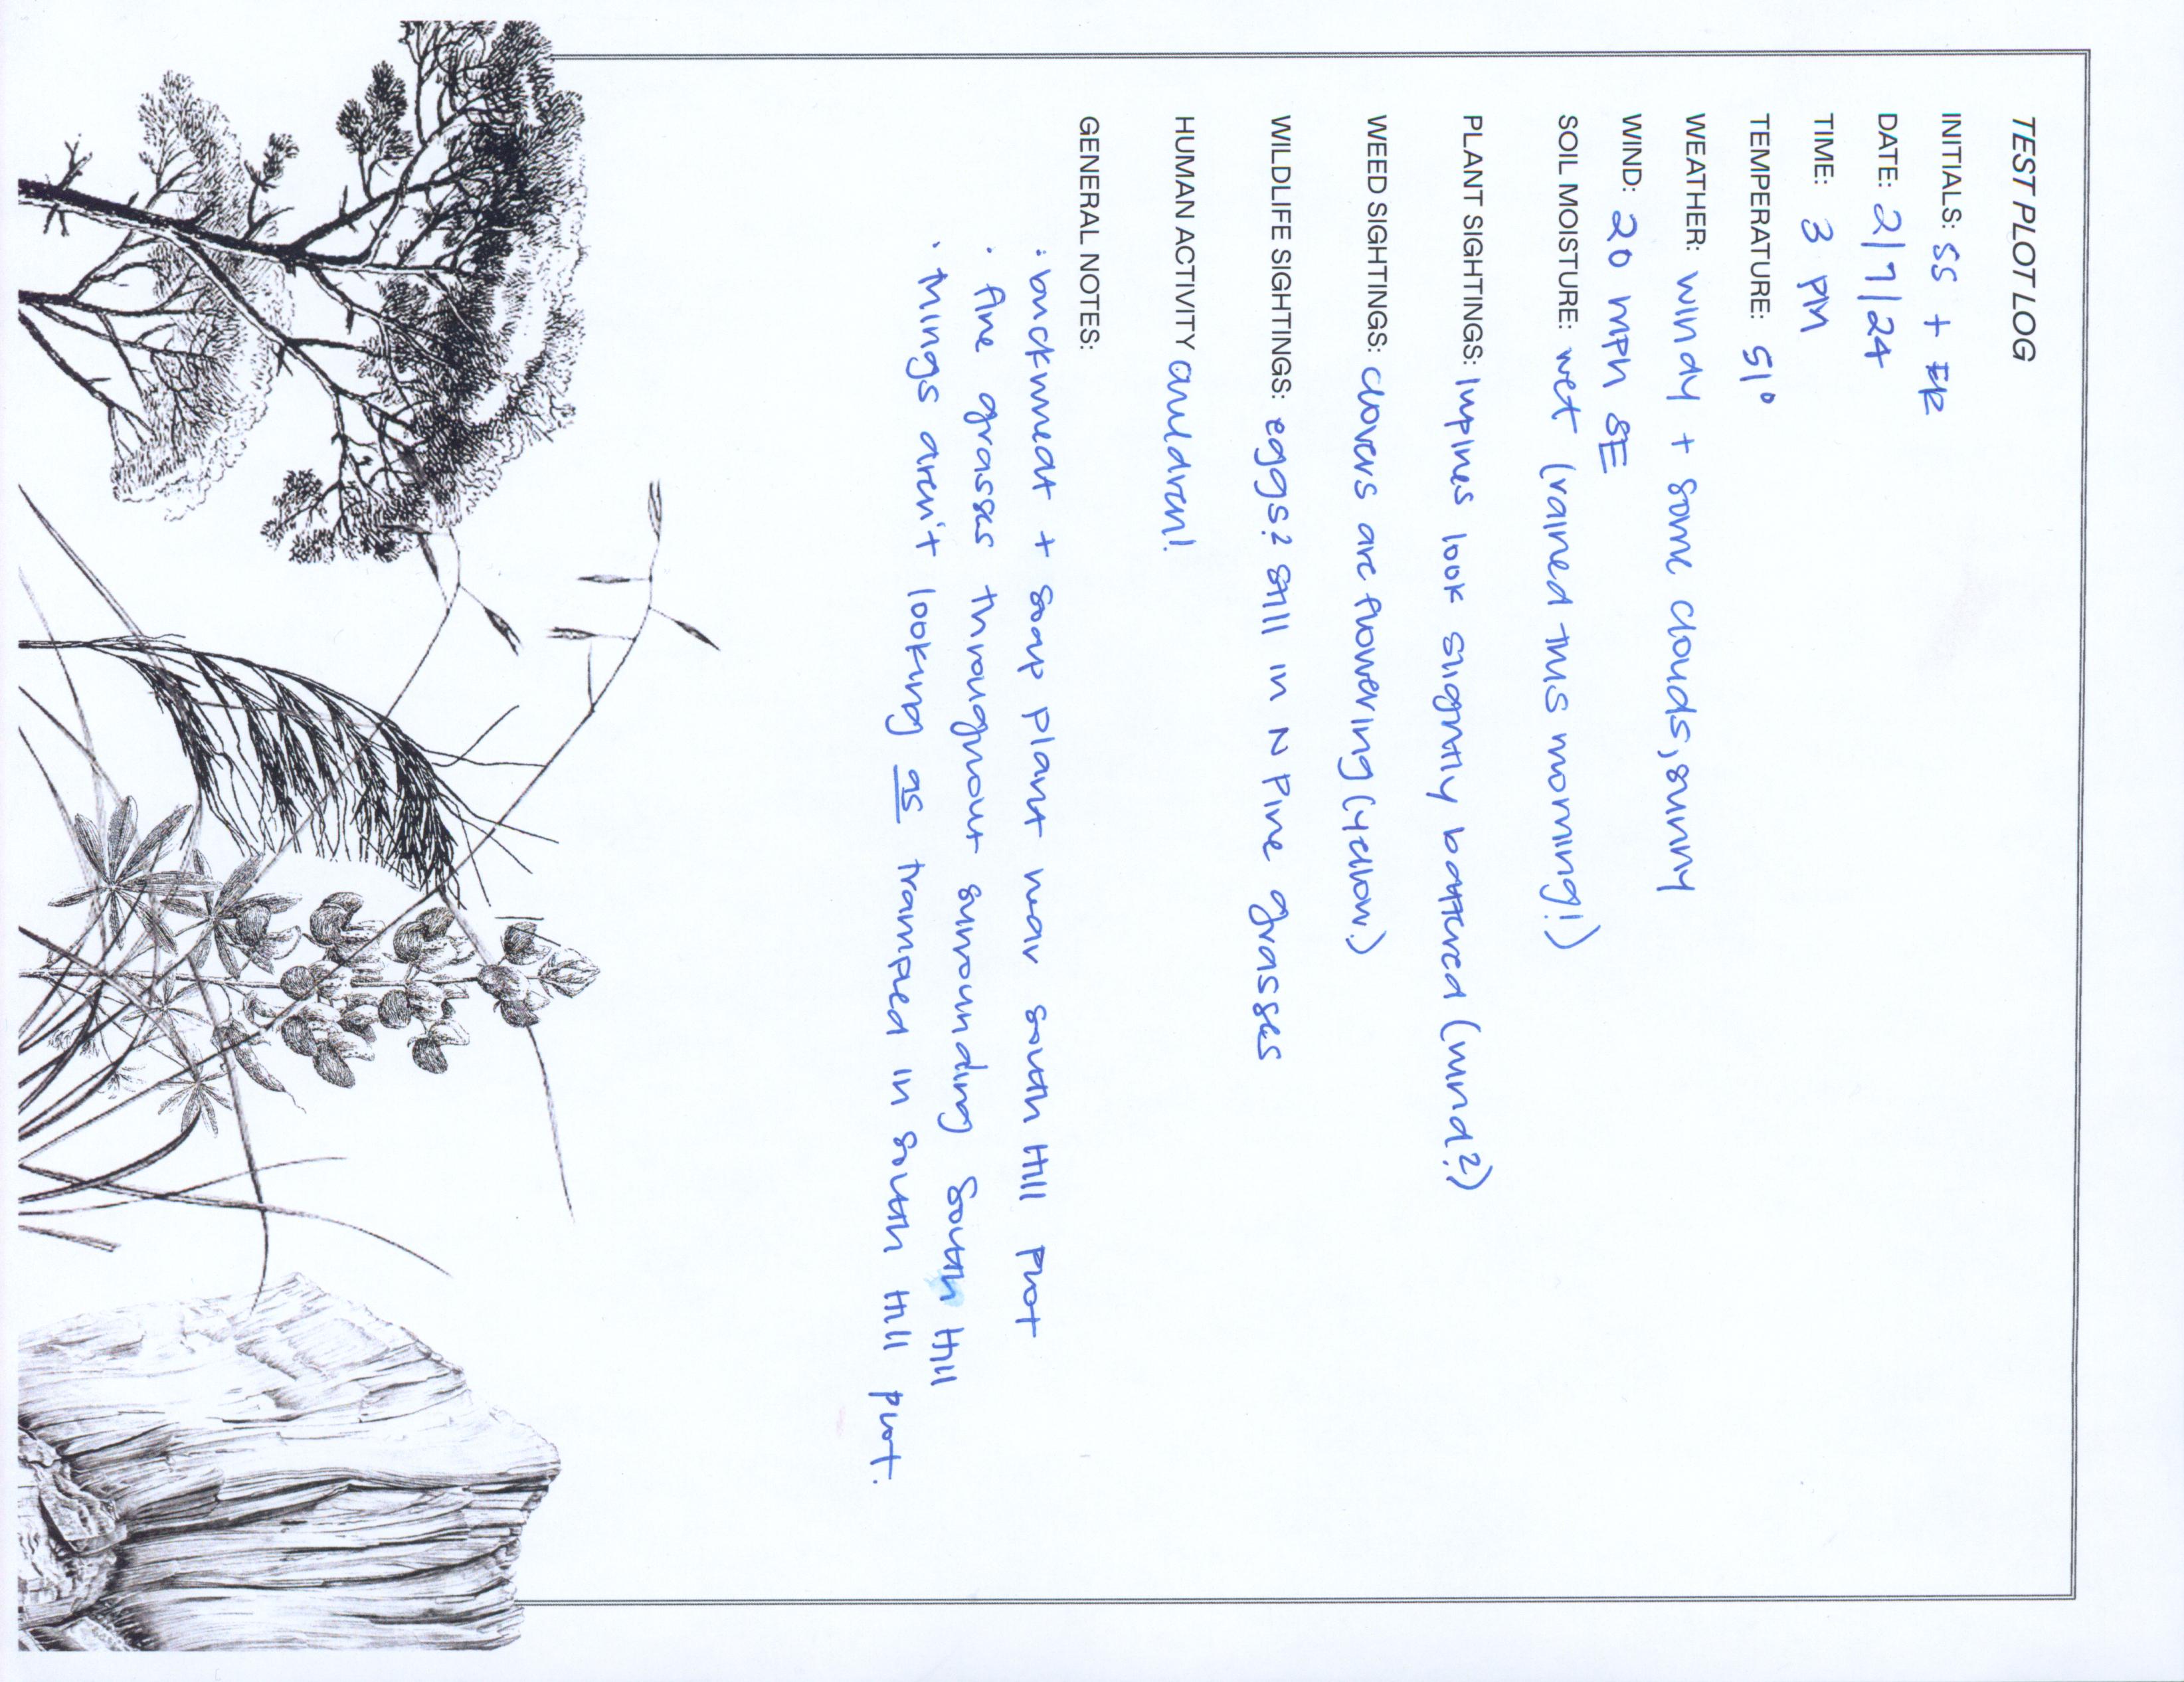 TEST PLOT LOG
INITIALS: SS + ER
DATE: 2/7/24
TIME: 3 PM
TEMPERATURE: 51°
WEATHER: windy + some clouds, sunny
WIND: 20 mph SE
SOIL MOISTURE: wet (rained this morning!)
PLANT SIGHTINGS: lupines look slightly battered (wind?)
WEED SIGHTINGS: clovers are flowering (yellow)
WILDLIFE SIGHTINGS: eggs? still in N Pine grasses
HUMAN ACTIVITY children!
GENERAL NOTES:
· buckwheat + soap plant near south Hill plot
· fine grasses throughout surrounding South Hill
· things aren't looking as trampled in south Hill plot.